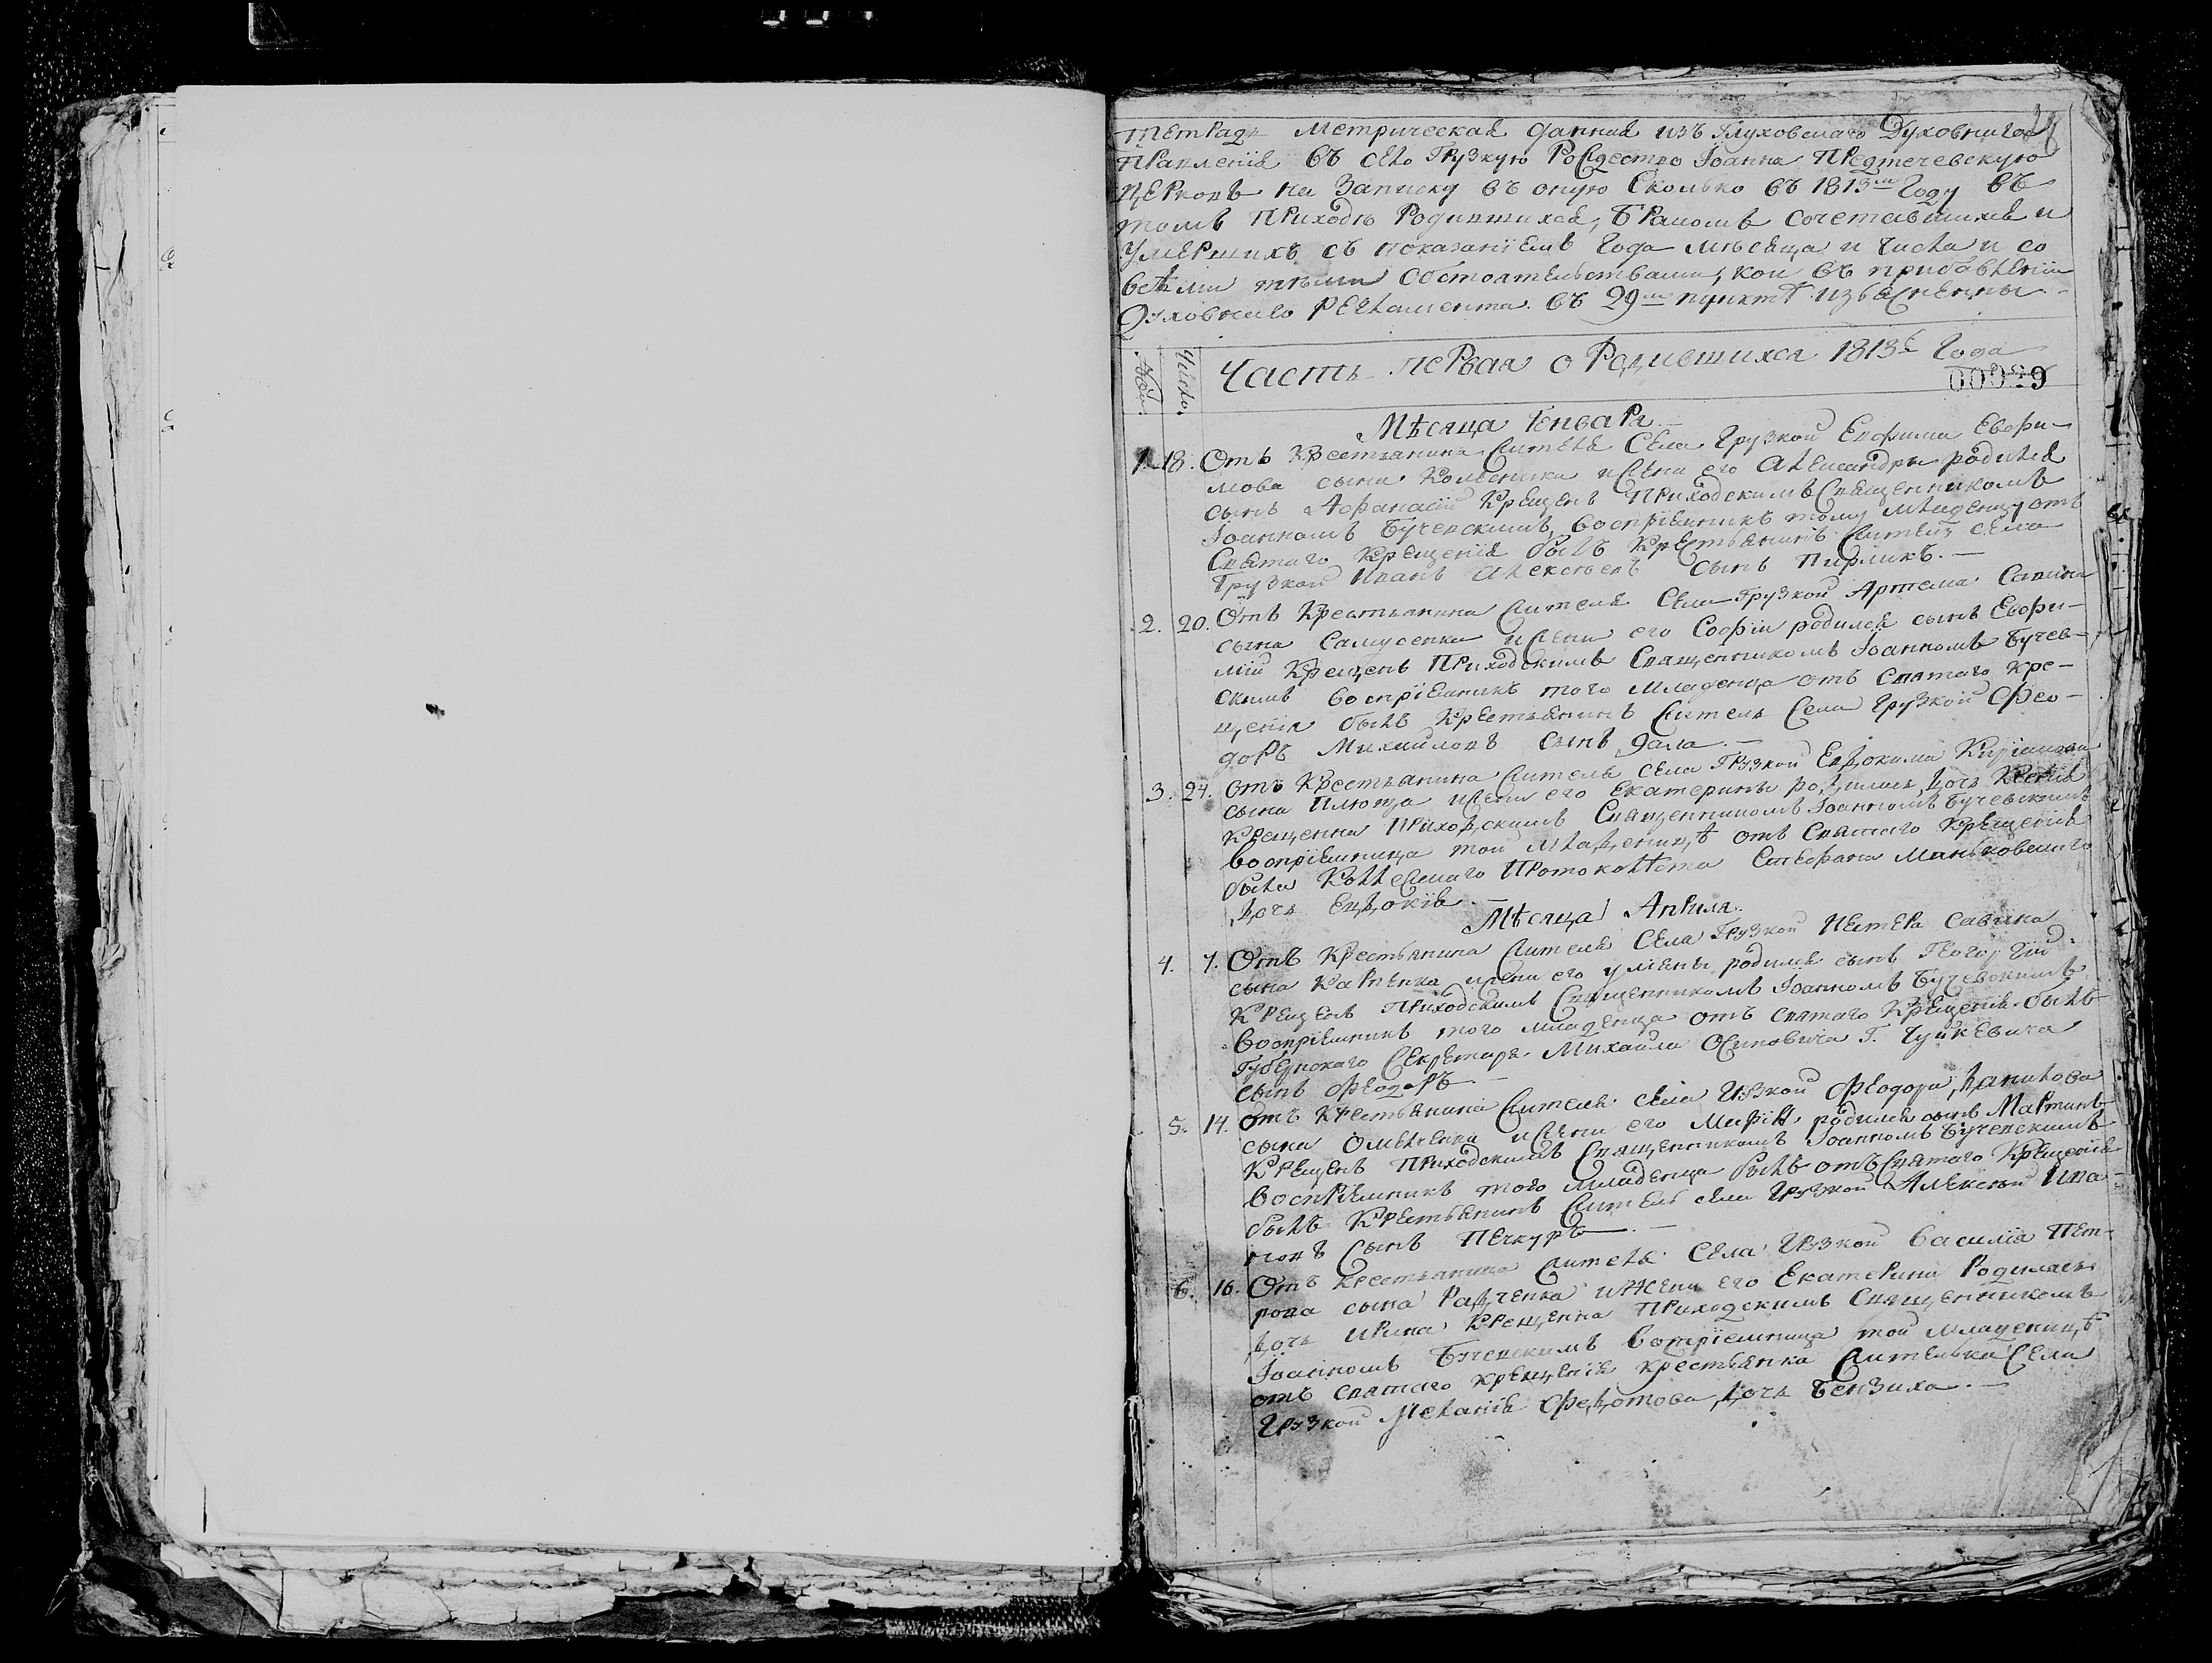 Тетрадь Метрическая данная изъ Глуховскаго Духовнаго
Правленія въ село Грузкую Рождество Іоанна Предтечевскую
Церковь на Записку въ оную Сколько въ 1813мъ Году въ
томъ Приходѣ Родившихся, Бракомъ сочетавшихся и
Умершихъ съ показаніемъ Года мѣсяца и Числа и со
всѣми тѣми Обстоятельствами, кои въ прибавленіи
Духовнаго Регламента въ 29мъ пунктѣ изъясненны
Число.
Часть первая о Родившихся 1813го Года
00929
Мѣсяца Генваря.
1. 18. Отъ Крестьянина Жителя Села Грузкой Евфима Евфи-
мова сына и жены его Александры родился
сынъ Афанасій Крещенъ Приходскимъ Священникомъ
Іоанномъ Бучевскимъ, воспріемникъ тому младенцу отъ
Святаго Крещенія былъ Крестьянинъ Житель села
Грузкой Иванъ Алексѣевъ сынъ
2. 20. Отъ Крестьянина Жителя Села Грузкой Артема Савина
сына Самусенка и жены его Софіи родился сынъ Евфи-
мій Крещенъ Приходскимъ Священникомъ Іоанномъ Бучев-
скимъ воспріемникъ того младенца отъ Святаго Кре-
щенія былъ Крестьянинъ Житель Села Грузкой Фео-
доръ Михайловъ сынъ
3. 24. отъ Крестьянина Жителя села Грузкой Евдокима
сына Плюща и жены его Екатерины родилась дочь Ксенія
Крещенна Приходскимъ Священникомъ Іоанномъ Бучевскимъ
воспріемница той младеницѣ отъ Святаго Крещенія
была Стефана Маньковскаго
дочь Евдокія.
Мѣсяца Априля.
4. 7. Отъ Крестьянина Жителя Села Грузкой Нестера Савина
сына Карпенка и жены его Улияны родился сынъ Георгій
Крещенъ Приходскимъ Священникомъ Іоанномъ Бучевскимъ
воспріемникъ того младенца отъ святаго Крещенія былъ
Губернскаго Секретаря Михаила Осиповича Г. Чуйкевича
сынъ Феодоръ
5. 14. отъ Крестьянина Жителя села Грузкой Феодора Данилова
сына и жены его Маріи родился сынъ Мартинъ
Крещенъ Приходскимъ Священникомъ Іоанномъ Бучевскимъ
воспріемникъ того младенца былъ отъ Святаго Крещенія
былъ Крестьянинъ Житель села Грузкой Алексѣй Ива-
новъ Сынъ Печкуръ
6. 16. Отъ крестьянина Жителя Села Грузкой Василія Пет-
рова сына Радченка и Жены его Екатерины Родилась
дочь Ирина Крещенна Приходскимъ Священникомъ
Іоанномъ Бучевскимъ воспріемница той младеницѣ
отъ святаго крещенія крестьянка Жителька Села
Грузкой Меланія Федотова дочь Бензиха.